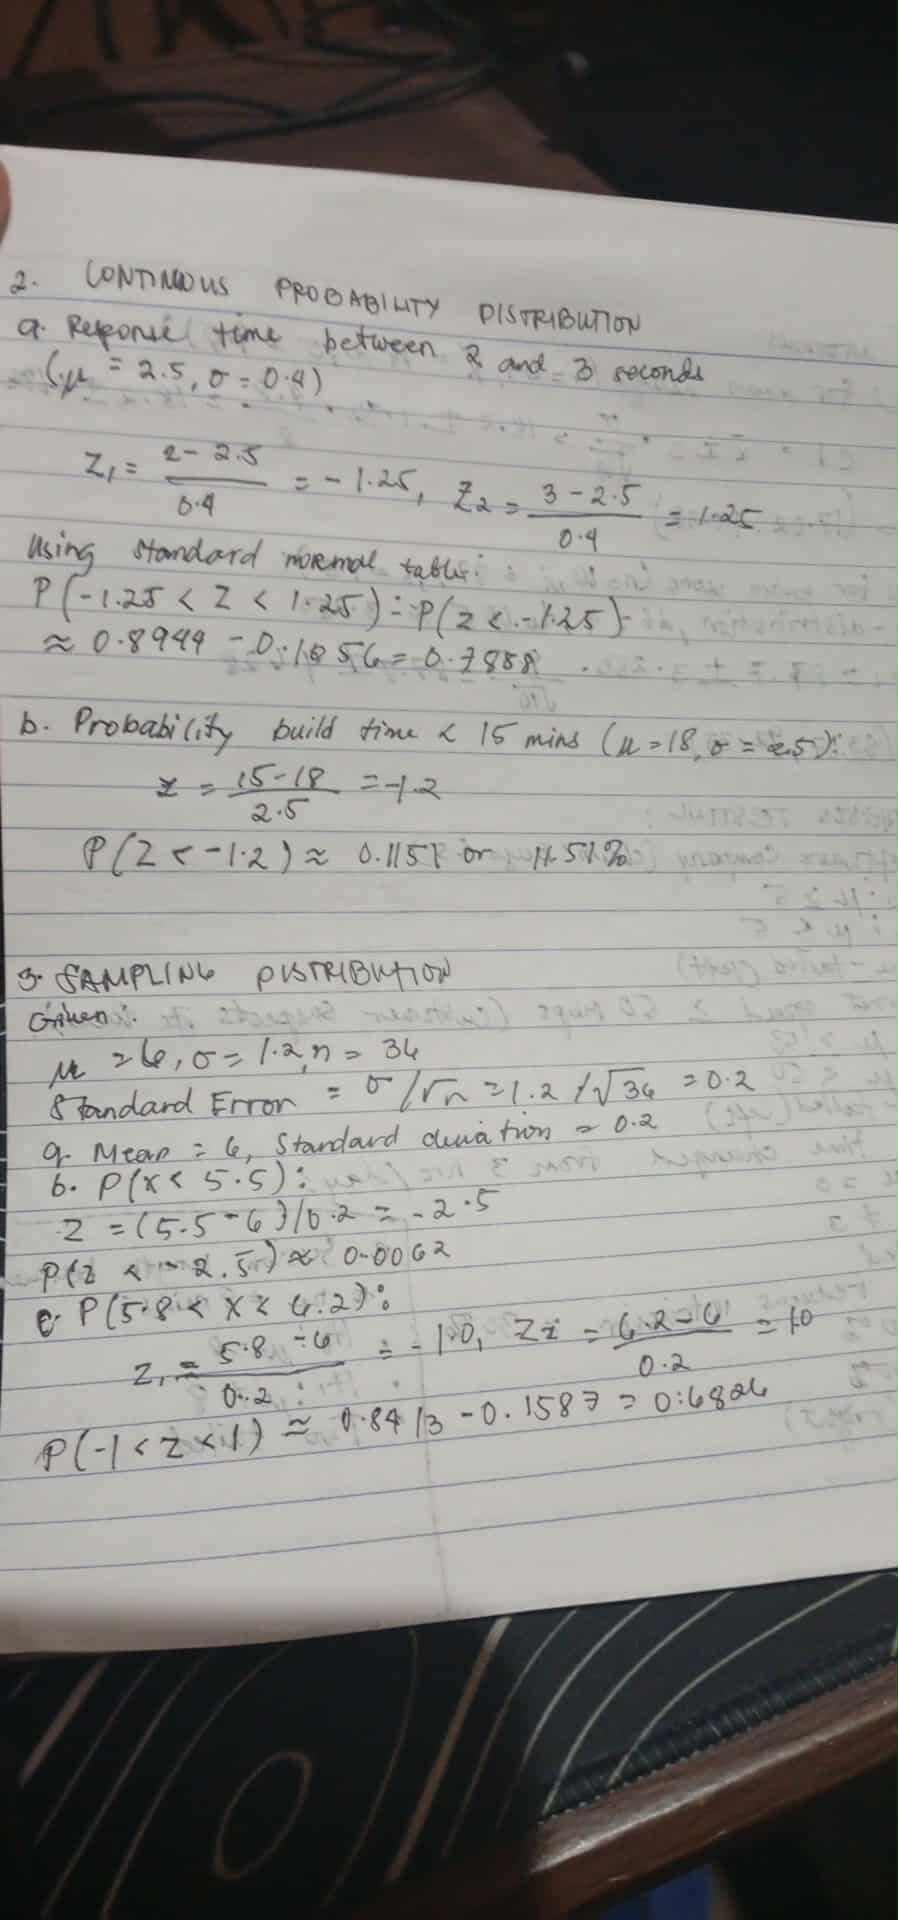 2. CONTINUOUS PROBABILITY DISTRIBUTION
a. Response time between 2 and 3 seconds
(μ = 2.5, σ = 0.4)
Z₁ = 2 - 2.5 / 0.4 = -1.25, Z₂ = 3 - 2.5 / 0.4 = 1.25
Using standard normal table:
P(-1.25 < Z < 1.25) = P(Z < -1.25)
≈ 0.8944 - 0.1056 = 0.7888
b. Probability build time < 15 mins (μ = 18, σ = 2.5):
z = 15-18 / 2.5 = -1.2
P(Z < -1.2) ≈ 0.1151 or 11.51%
3. SAMPLING DISTRIBUTION
Given:
μ = 6, σ = 1.2, n = 36
Standard Error = σ/√n = 1.2/√36 = 0.2
a. Mean = 6, Standard deviation = 0.2
b. P(x < 5.5):
Z = (5.5-6)/0.2 = -2.5
P(Z < -2.5) ≈ 0.0062
c. P(5.8 < x < 6.2):
Z₁ = 5.8 - 6 / 0.2 = -1.0, Z₂ = 6.2-6 / 0.2 = 1.0
P(-1 < Z < 1) ≈ 0.8413 - 0.1587 = 0.6826